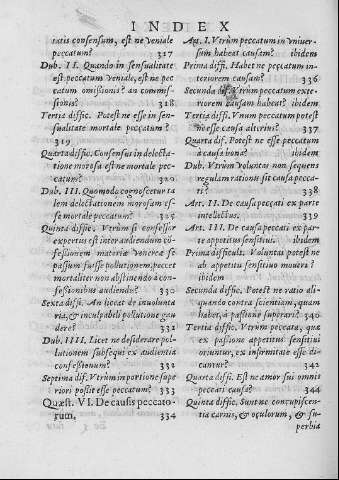 INDEX
ratis consensum, est ne veniale
peccatum? 317
Dub. II. Quando in sensualitate
est peccatum veniale, est ne pec
catum omissionis? an commis-
sionis? 318
Tertia diffic. Potest ne esse in sen-
sualitate mortale peccatum?
319
Quarta diffic. Consensus in delecta-
tione morosa est ne mortale pec-
catum? 320
Dub. III. Quomodo cognoscetur ta
lem delectationem morosam es-
se mortale peccatum? 325
Quinta diffic. Vtrùm si confessor
expertus est inter audiendum cō-
fessionem materiæ venereæ se
passum fuisse pollutionem, peccet
mortaliter non abstinendo à con-
fessionibus audiendo? 330
Sexta diffic. An liceat de inuolunta
ria, & inculpabili pollutione gau
dere? 331
Dub. IIII. Licet ne desiderare pol-
lutionem subsequi ex audientia
confessionum? 332
Septima dif. Vtrùm in portione supe
riori possit esse peccatum? 333
Quæst. VI. De causis peccato-
rum. 334
Art. I. Vtrùm peccatum in vniuer-
sum habeat causam? ibidem
Prima diffi. Habet ne peccatum in-
teriorem causam? 336
Secunda dif. Vtrùm peccatum exte-
riorem causam habeat? ibidem
Tertia diffi. Vnum peccatum potest
ne esse causa alterius? 337
Quarta dif. Potest ne esse peccatum
à causa bona? ibidem
Dub. Vtrùm voluntas non sequens
regulam rationis sit causa pecca-
ti? 338
Art. II. De causa peccati ex parte
intellectus. 339
Art. III. De causa peccati ex par-
te appetitus sensitiui. ibidem
Prima difficult. Voluntas potest ne
ab appetitu sensitiuo moueri?
ibidem
Secunda diffic. Potest ne ratio ali-
quando contra scientiam, quam
habet, à passione superari? 340
Tertia diffic. Vtrùm peccata, quæ
ex passione appetitus sensitiui
oriuntur, ex infirmitate esse di-
cantur? 342
Quarta diffic. Est ne amor sui omnis
peccati causa? 344
Quinta diffic. Sunt ne concupiscen-
tia carnis, & oculorum, & su-
perbia